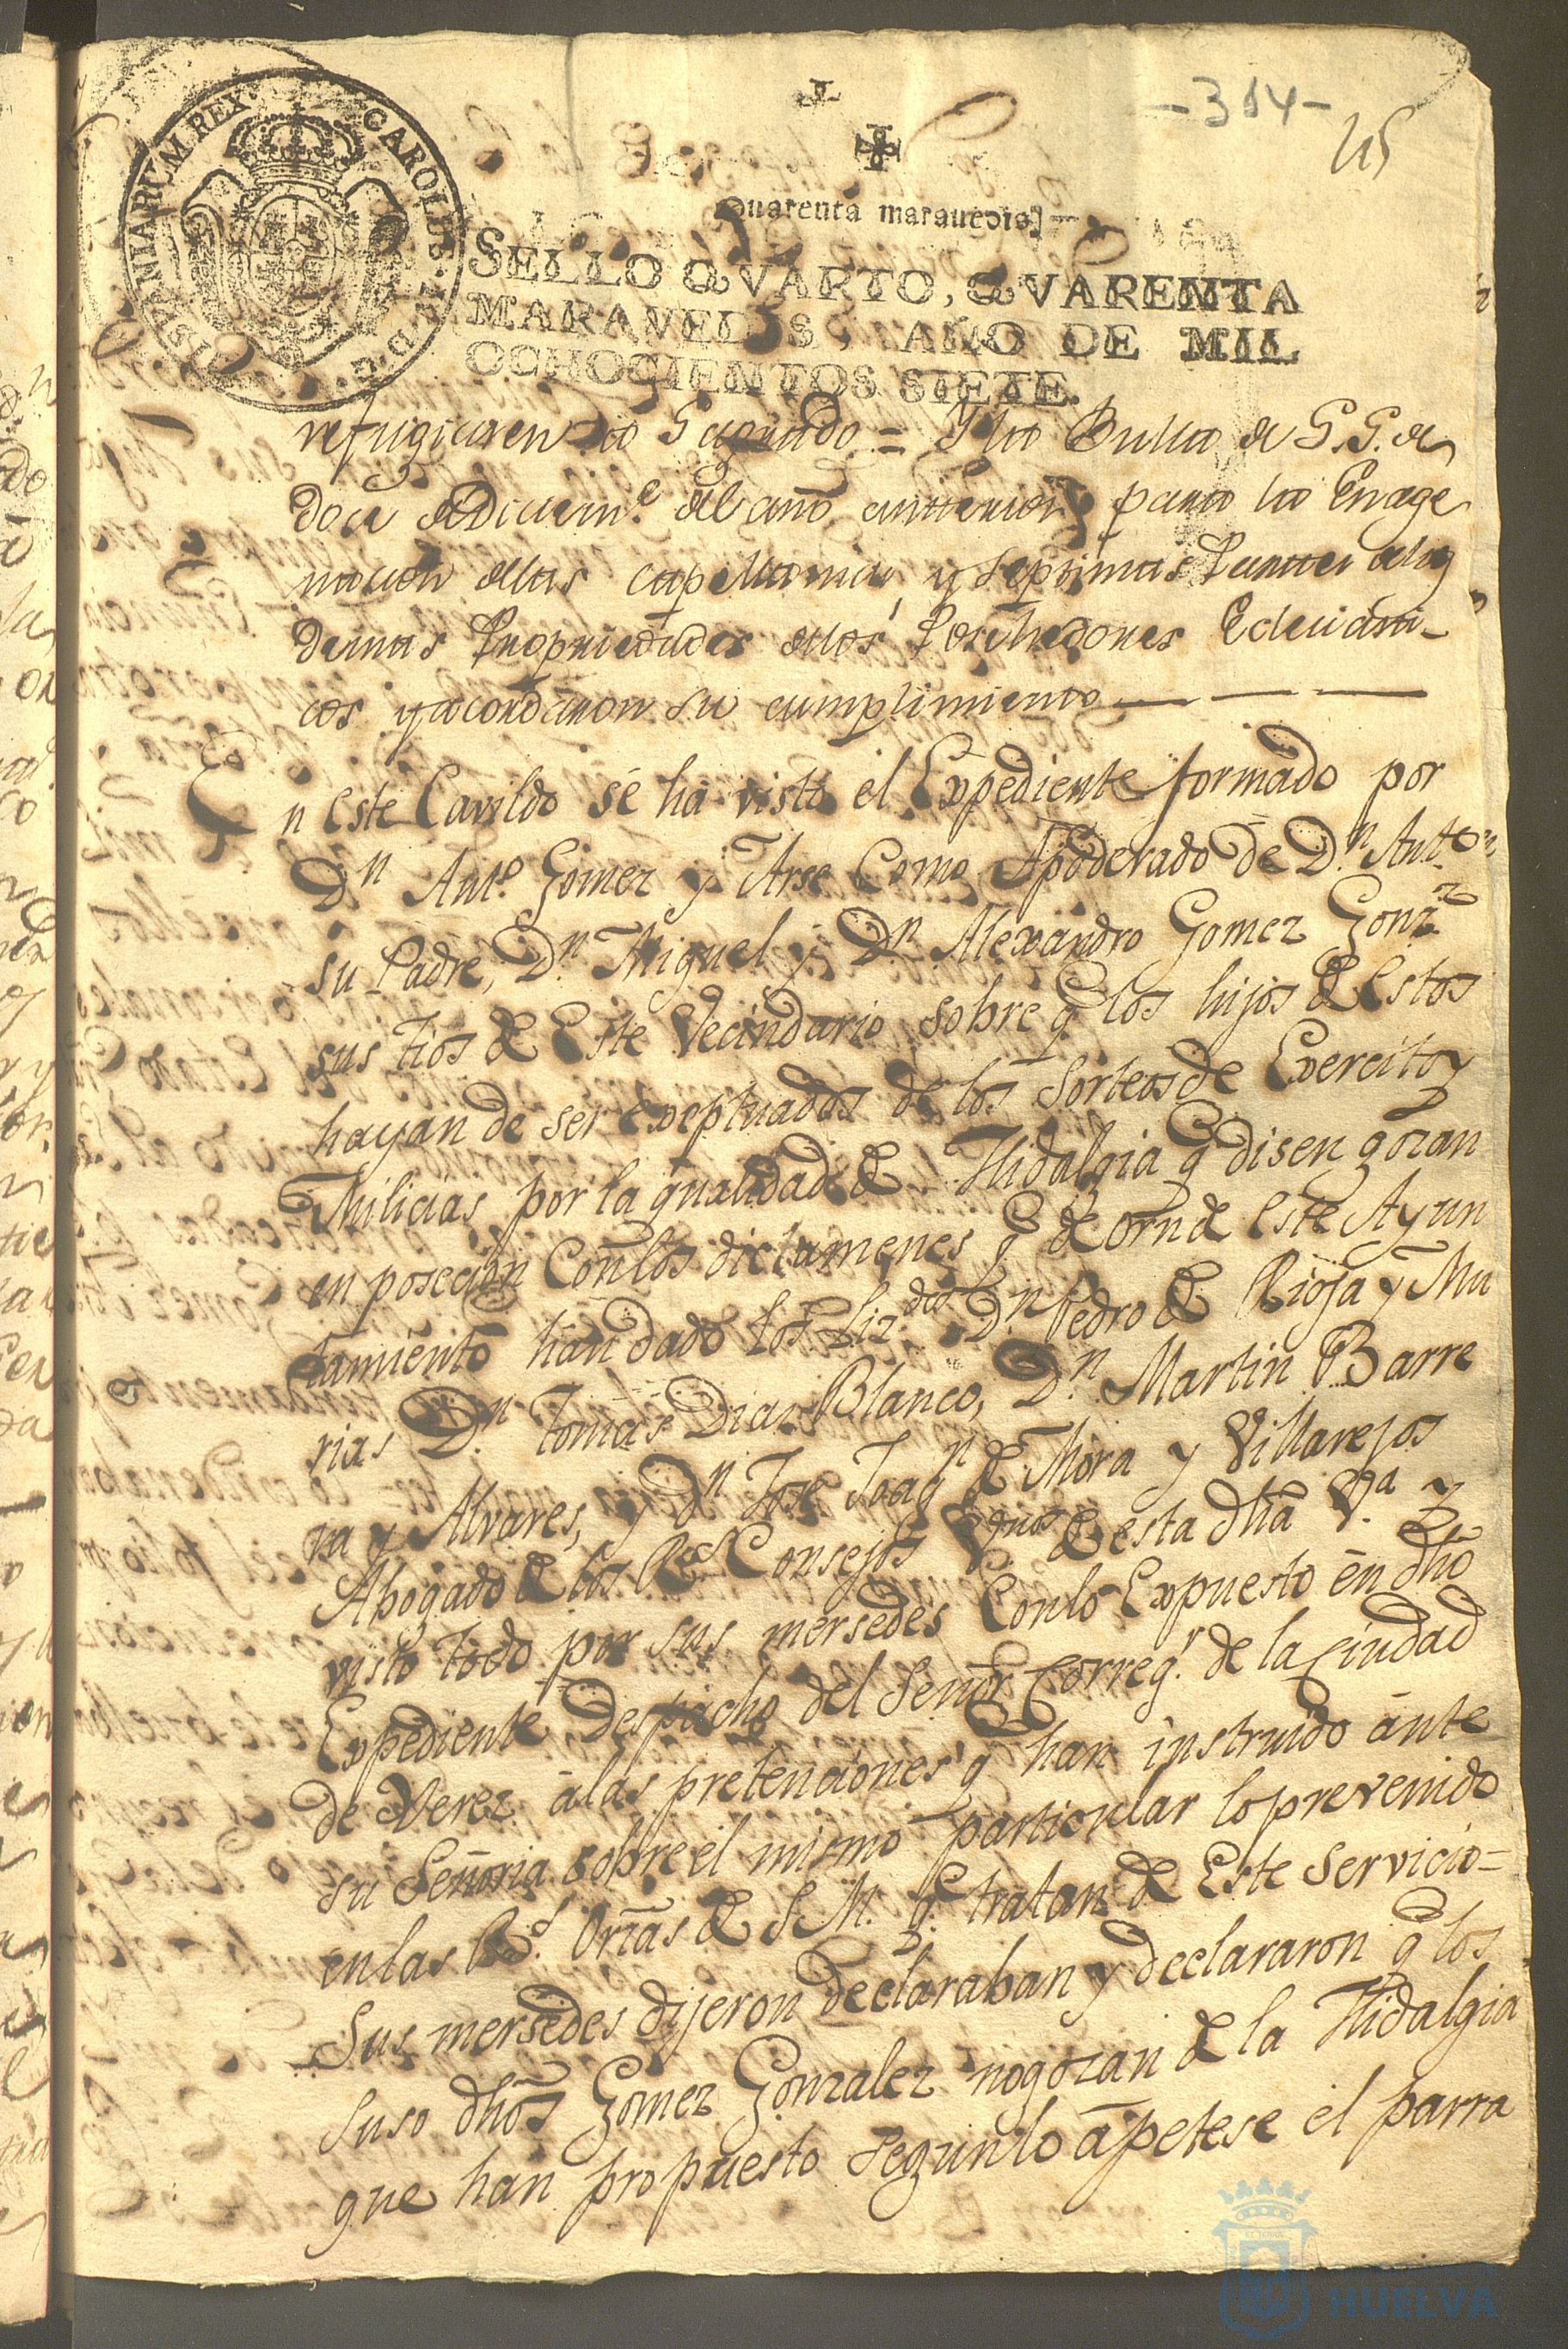 -314-
45
CAROLUS. IV. D. G. HISPANIARUM REX.
Quarenta maravedis
SELLO QVARTO, QVARENTA
MARAVEDIS, AÑO DE MIL
OCHOCIENTOS SIETE.
refugiaren a Sagrado = Y la Bulla de S.S. de
doce de Diciem.e del año anterior para la Enage
nacion delas Capellanias, y septimas Partes delas
demas Propriedades dellos Posehedores Eclesiasti-
cos y acordaron su cumplimiento
En este Cavildo se ha visto el Expediente formado por
Dn Anto. Gomez y Arse Como Apoderado de Dn. Anto.
su Padre, Dn. Miguel y Dn Alexandro Gomez Gonz
sus tios de Este Vecindario sobre q los hijos de Estos
hayan de ser exeptuados de los Sorteos de Exercito y
Milicias por la qualidad de Hidalgia q disen gozan
en poseción Con los dictamenes q de orn de este Ayun
tamiento han dado los Liz.dos Dn Pedro de Rioja y Mu
rias Dn. Tomas Dias Blanco, Dn. Martin Barre
ra y Alvares, y Dn Jose Joaqn de Mora y Villarejos
Abogado de los Rs Consejos Vnos de esta dha Va. y
visto todo por sus mersedes Con lo Expuesto en dho
Expediente Despacho del Señor Correg.r de la Ciudad
de Xerez a las pretenciones q han instruido ante
su Señoria sobre el mismo particular lo prevenido
en las Rs. Orns de S M. q. tratan de Este Servicio =
Sus mersedes dijeron declaraban y declararon q los
Suso dhos Gomez Gonzalez no gozan de la Hidalgia
que han propuesto segun lo apetese el parra
HUELVA